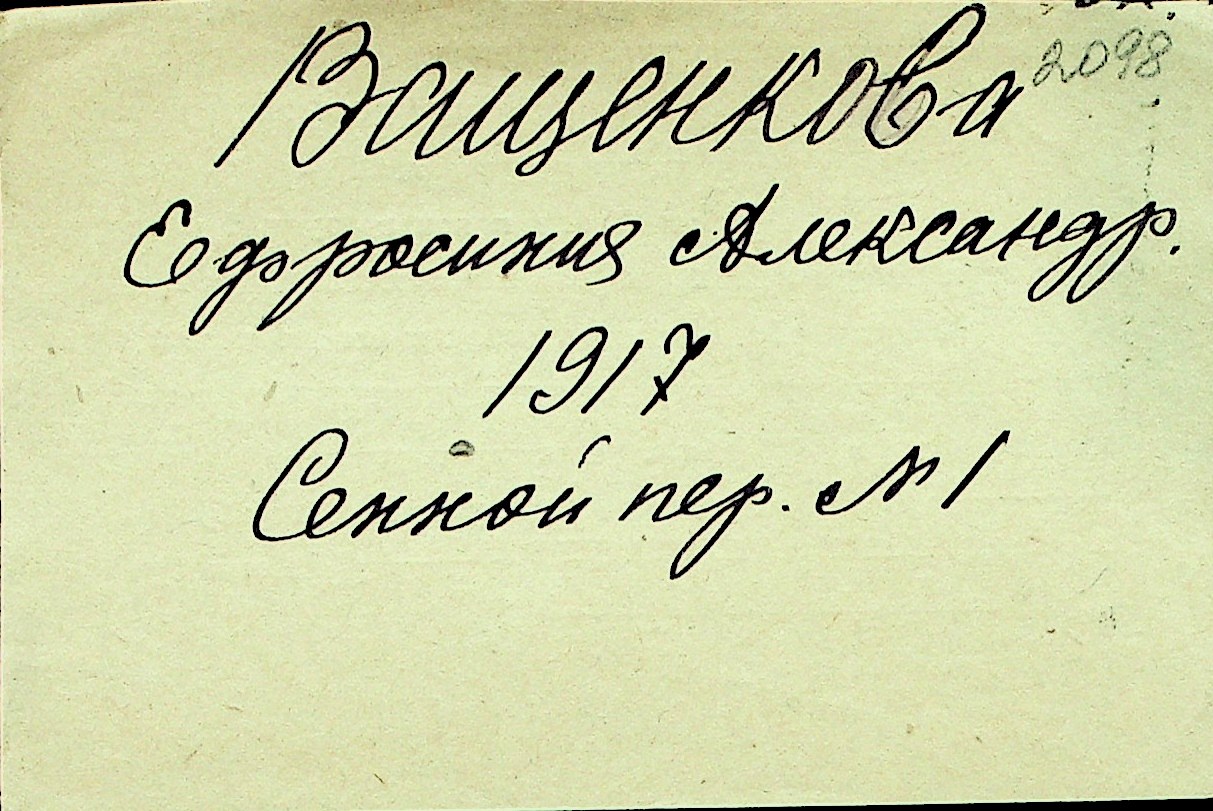 2098
Ващенкова
Ефросиния Александр.
1917
Сенной пер. № 1